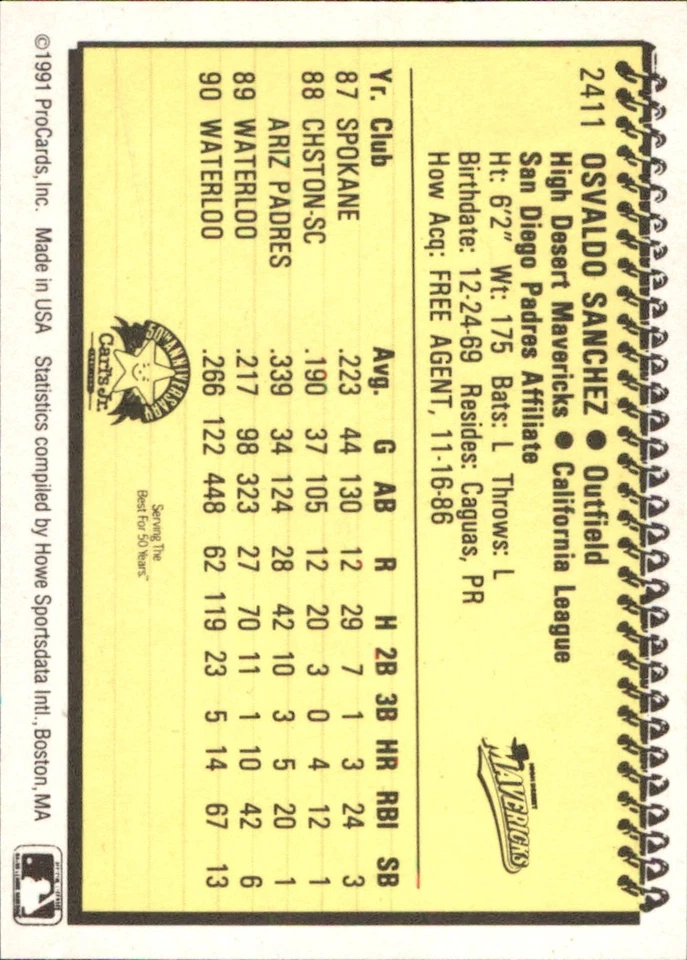 2411 OSVALDO SANCHEZ ● Outfield
High Desert Mavericks ● California League
San Diego Padres Affiliate
Ht: 6'2" Wt: 175 Bats: L Throws: L
Birthdate: 12-24-69 Resides: Caguas, PR
How Acq: FREE AGENT, 11-16-86
MAVERICKS
Yr. Club Avg. G AB R H 2B 3B HR RBI SB
87 SPOKANE .223 44 130 12 29 7 1 3 24 3
88 CHSTON-SC .190 37 105 12 20 3 0 4 12 1
ARIZ PADRES .339 34 124 28 42 10 3 5 20 1
89 WATERLOO .217 98 323 27 70 11 1 10 42 6
90 WATERLOO .266 122 448 62 119 23 5 14 67 13
50TH ANNIVERSARY
Carl's Jr.
Serving The
Best For 50 Years™
©1991 ProCards, Inc. Made in USA Statistics compiled by Howe Sportsdata Intl., Boston, MA